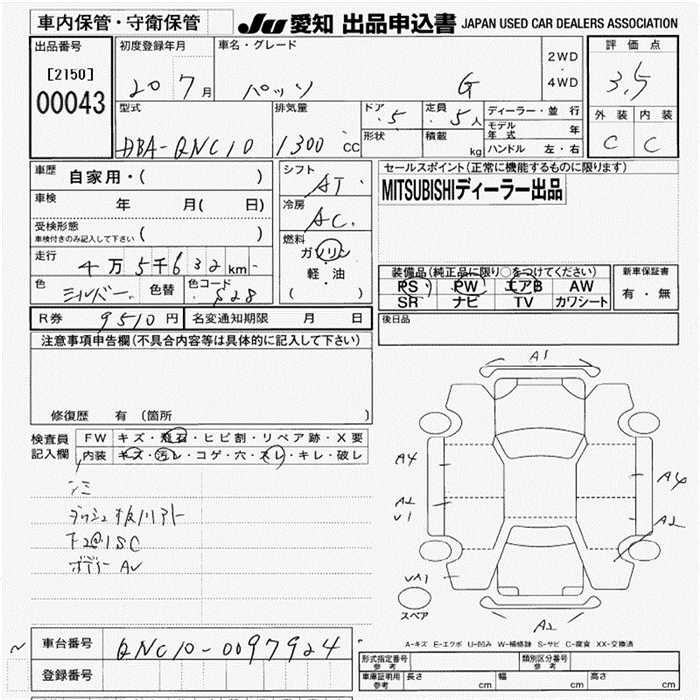 車内保管・守衛保管 JU 愛知 出品申込書 JAPAN USED CAR DEALERS ASSOCIATION
出品番号 [2150] 00043
初度登録年月 20 7月
車名・グレード パッソ G
2WD ・ 4WD
評価点 3.5
外装 内装
C C
型式 DBA-QNC10
排気量 1300 cc
ドア 5
定員 5人
形状
積載 kg
ディーラー・並行
モデル年式 年
ハンドル 左・右
車歴 自家用・( )
車検 年 月( 日)
受検形態 ( )
車検付きのみ記入して下さい
走行 4万5千632km
色 シルバー 色替 色コード S28
シフト AT
冷房 AC
燃料 ガソリン ・ 軽・油 ( )
セールスポイント(正常に機能するものに限ります)
MITSUBISHIディーラー出品
装備品(純正品に限り○をつけてください)
PS PW エアB AW
SR ナビ TV カワシート
新車保証書 有・無
R券 9510円 名変通知期限 月 日
後日品
注意事項申告欄(不具合内容等は具体的に記入して下さい)
修復歴 有(箇所 )
検査員記入欄
FW キズ・飛石・ヒビ割・リペア跡・X要
内装 キズ・汚レ・コゲ・穴・スレ・キレ・破レ
シミ
ボデー AU
A1
A4
A4
A2
V1
A2
UA1
スペア
A2
A-キズ E-エクボ U-凹み W-補修跡 S-サビ C-腐食 XX-交換済
車台番号 QNC10-0097924
登録番号
形式指定番号 参考
類別区分番号 参考
車庫証明用 参考 長さ cm 幅 cm 高さ cm